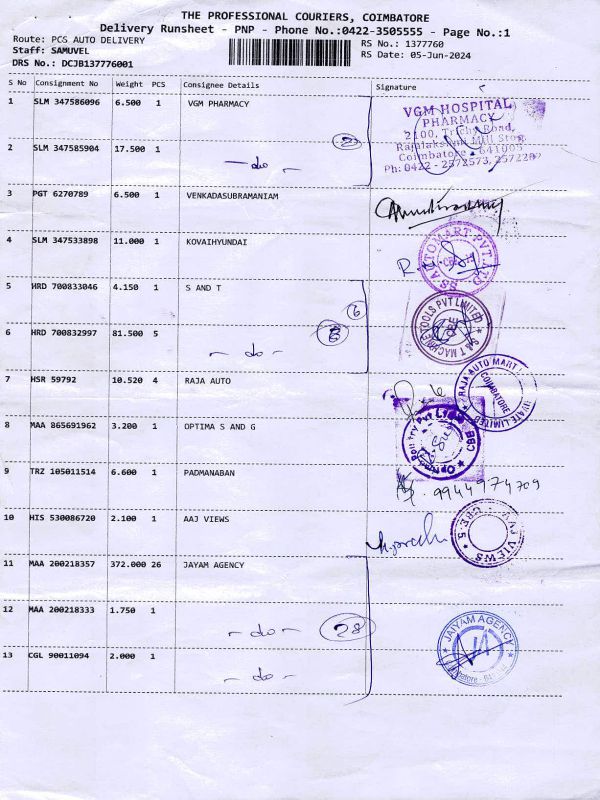 THE PROFESSIONAL COURIERS, COIMBATORE
Delivery Runsheet - PNP - Phone No.:0422-3505555 - Page No.:1
Route: PCS AUTO DELIVERY
Staff: SAMUVEL
DRS No.: DCJB137776001
RS No.: 1377760
RS Date: 05-Jun-2024
S No Consignment No Weight PCS Consignee Details Signature
1 SLM 347586096 6.500 1 VGM PHARMACY
VGM HOSPITAL
PHARMACY
2100, Trichy Road,
Rajalakshmi Mill Stop,
Coimbatore - 641005
Ph: 0422 - 2572573, 2572289
2 SLM 347585904 17.500 1 - do -
2
3 PGT 6270789 6.500 1 VENKADASUBRAMANIAM
4 SLM 347533898 11.000 1 KOVAIHYUNDAI
SS AUTOMART PVT LTD
5 HRD 700833046 4.150 1 S AND T
6
S&T MACHINE TOOLS PVT LIMITED
6 HRD 700832997 81.500 5 - do -
7 HSR 59792 10.520 4 RAJA AUTO
RAJA AUTO MART
COIMBATORE
8 MAA 865691962 3.200 1 OPTIMA S AND G
9 TRZ 105011514 6.600 1 PADMANABAN
9944974709
10 HIS 530086720 2.100 1 AAJ VIEWS
AAJ VIEWS
CBE-5
11 MAA 200218357 372.000 26 JAYAM AGENCY
12 MAA 200218333 1.750 1 - do -
28
JAIYAM AGENCY
13 CGL 90011094 2.000 1 - do -